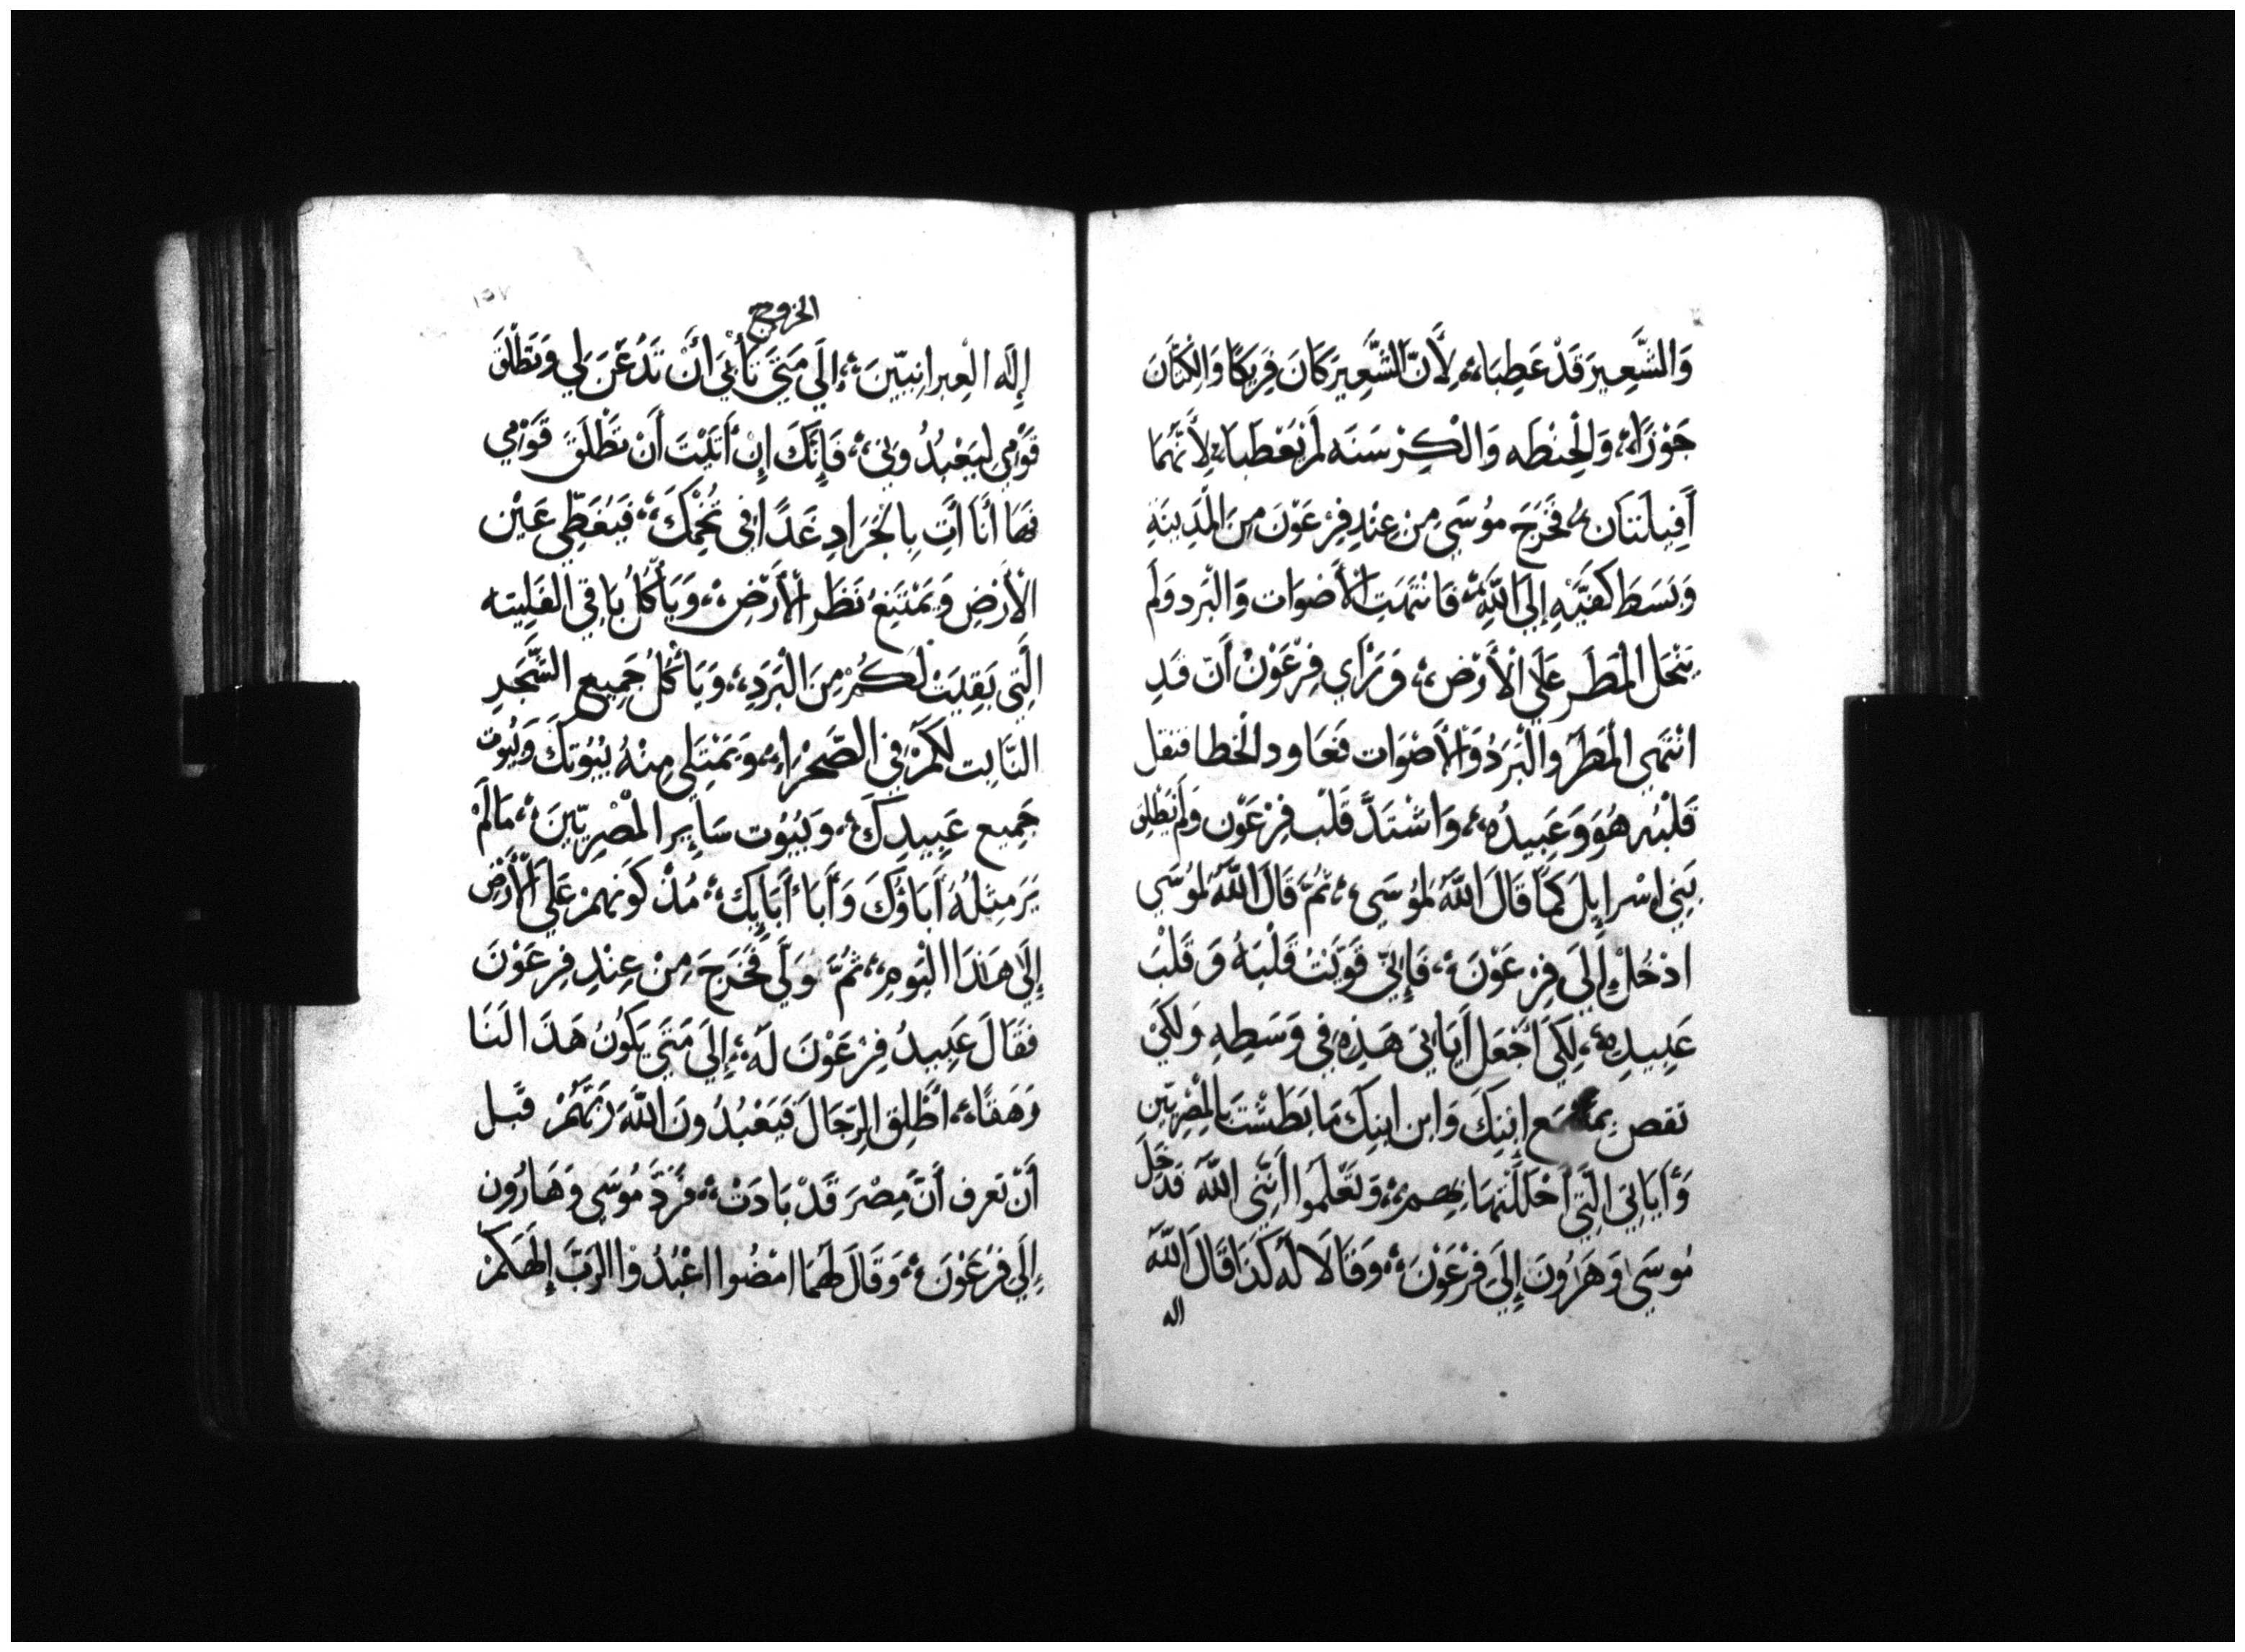 وَالشَّعِيرَ قَدْ عَطِبَا، لِأَنَّ الشَّعِيرَ كَانَ فَرِيكًا وَالْكَتَّانَ
جَوْزًا، وَالْحِنطَه وَالْكِرْسَنَه لَمْ يَعْطَبا، لِأَنَّهُمَا
أَفِيلَتَان، فَخَرَجَ مُوسَي مِنْ عِنْدِ فِرْعَوْنَ مِنَ الْمَدِينَةِ
وَبَسَطَ كَفَّيْهِ إِلَيَ اللَّهِ، فَانْتَهَتِ الْأَصْوَات وَالْبَرد وَلَم
يَنْحَل الْمَطَر عَلَي الْأَرْضِ، وَرَأَي فِرْعَوْنُ أَن قَدِ
انْتَهَي الْمَطَرُ والْبَرَدُ وَالْأَصْوَات فَعَاود الْخَطا فثقل
قَلْبُه هُوَ وَعَبِيدُه، وَاشْتَدَّ قَلْب فِرْعَوْن وَلَم يُطْلِق
بَنِي اسْرايِلَ كَمَا قَالَ اللَّه لِمُوسَي، ثُمَّ قَالَ اللَّهُ لِمُوسَي
ادْخُلْ إِلَي فِرْعَوْنَ، فَإِنِّي قَوَّيْتُ قَلْبَهُ وَقَلْبَ
عَبِيدِهِ، لِكَيْ أَجْعَل أَيَاتِي هَذِهِ فِي وَسَطِهِ وَلِكَيْ
تقص مَسْمَع ابْنِكَ وَابن ابنِكَ مَا بَطَشْتُ بِالْمِصْرِيِّين
وَأَيَاتِي الَّتِي أَحْلَلْتهَا بِهِم، وَتَعْلَموا أَنَّنِي اللَّه فَدَخَلَ
مُوسَي وَهَرُونَ إِلَيَ فِرْعَوْنَ، وَقَالَا لَه كَذَا قَالَ اللَّه
اله
١٥٧
الخروج
إِلَه الْعِبرانِيِّينَ، إِلَي مَتَي تَأْبَي أَنْ تَذْعَن لِي وَتُطْلِقَ
قَوْمِي لِيَعْبُدُونِي، فَإِنَّكَ إِنْ أَبَيْتَ أَنْ تُطْلِقَ قَوْمِي
فَهَا أَنَا أتِ بِالْجَرَادِ غَدًا فِي تُخْمِكَ، فَيُغَطِّي عَيْن
الْأَرْضِ وَيَمْتَنِعُ نَظَر الْأَرْضِ، وَيَأْكُلُ بَاقِي الفَلِيته
الَّتِي بَقِيَتْ لَكُمْ مِنَ الْبَرَدِ، وَيَأْكُلُ جَمِيع الشَّجَرِ
النَّابِت لَكُمْ فِي الصَّحْرَاءِ، وَيَمْتَلِي مِنْهُ بُيُوتكَ وَبُيُوت
جَمِيع عَبِيدِكَ، وَبُيُوت سَايِر الْمصْرِيِّينَ، مَا لَمْ
يَرَ مِثْلهُ أَبَاؤُكَ وَأَبَا أَبَايِكَ، مُذْ كَوْنهمْ عَلَي الْأَرْض
إِلَي هَذَا الْيَومِ، ثُمَّ وَلَّي فَخَرَجَ مِنْ عِنْدِ فِرْعَوْنَ
فَقَالَ عَبِيدُ فِرْعَوْنَ لَه، إِلَي مَتَي يَكُونُ هَذَا لَنَا
وَهَقًا، اطْلِق الرِّجَالَ فَيَعْبُدُونَ اللَّهَ رَبَّهُمْ قَبل
أَنْ تعرف أَنَّ مِصْرَ قَدْ بَادَتْ، فَرَدَّ مُوسَي وَهَارُون
إِلَي فِرْعَوْنَ، وَقَالَ لَهُمَا امْضُوا اعْبُدُوا الرَّبَّ إِلَهَكُمْ